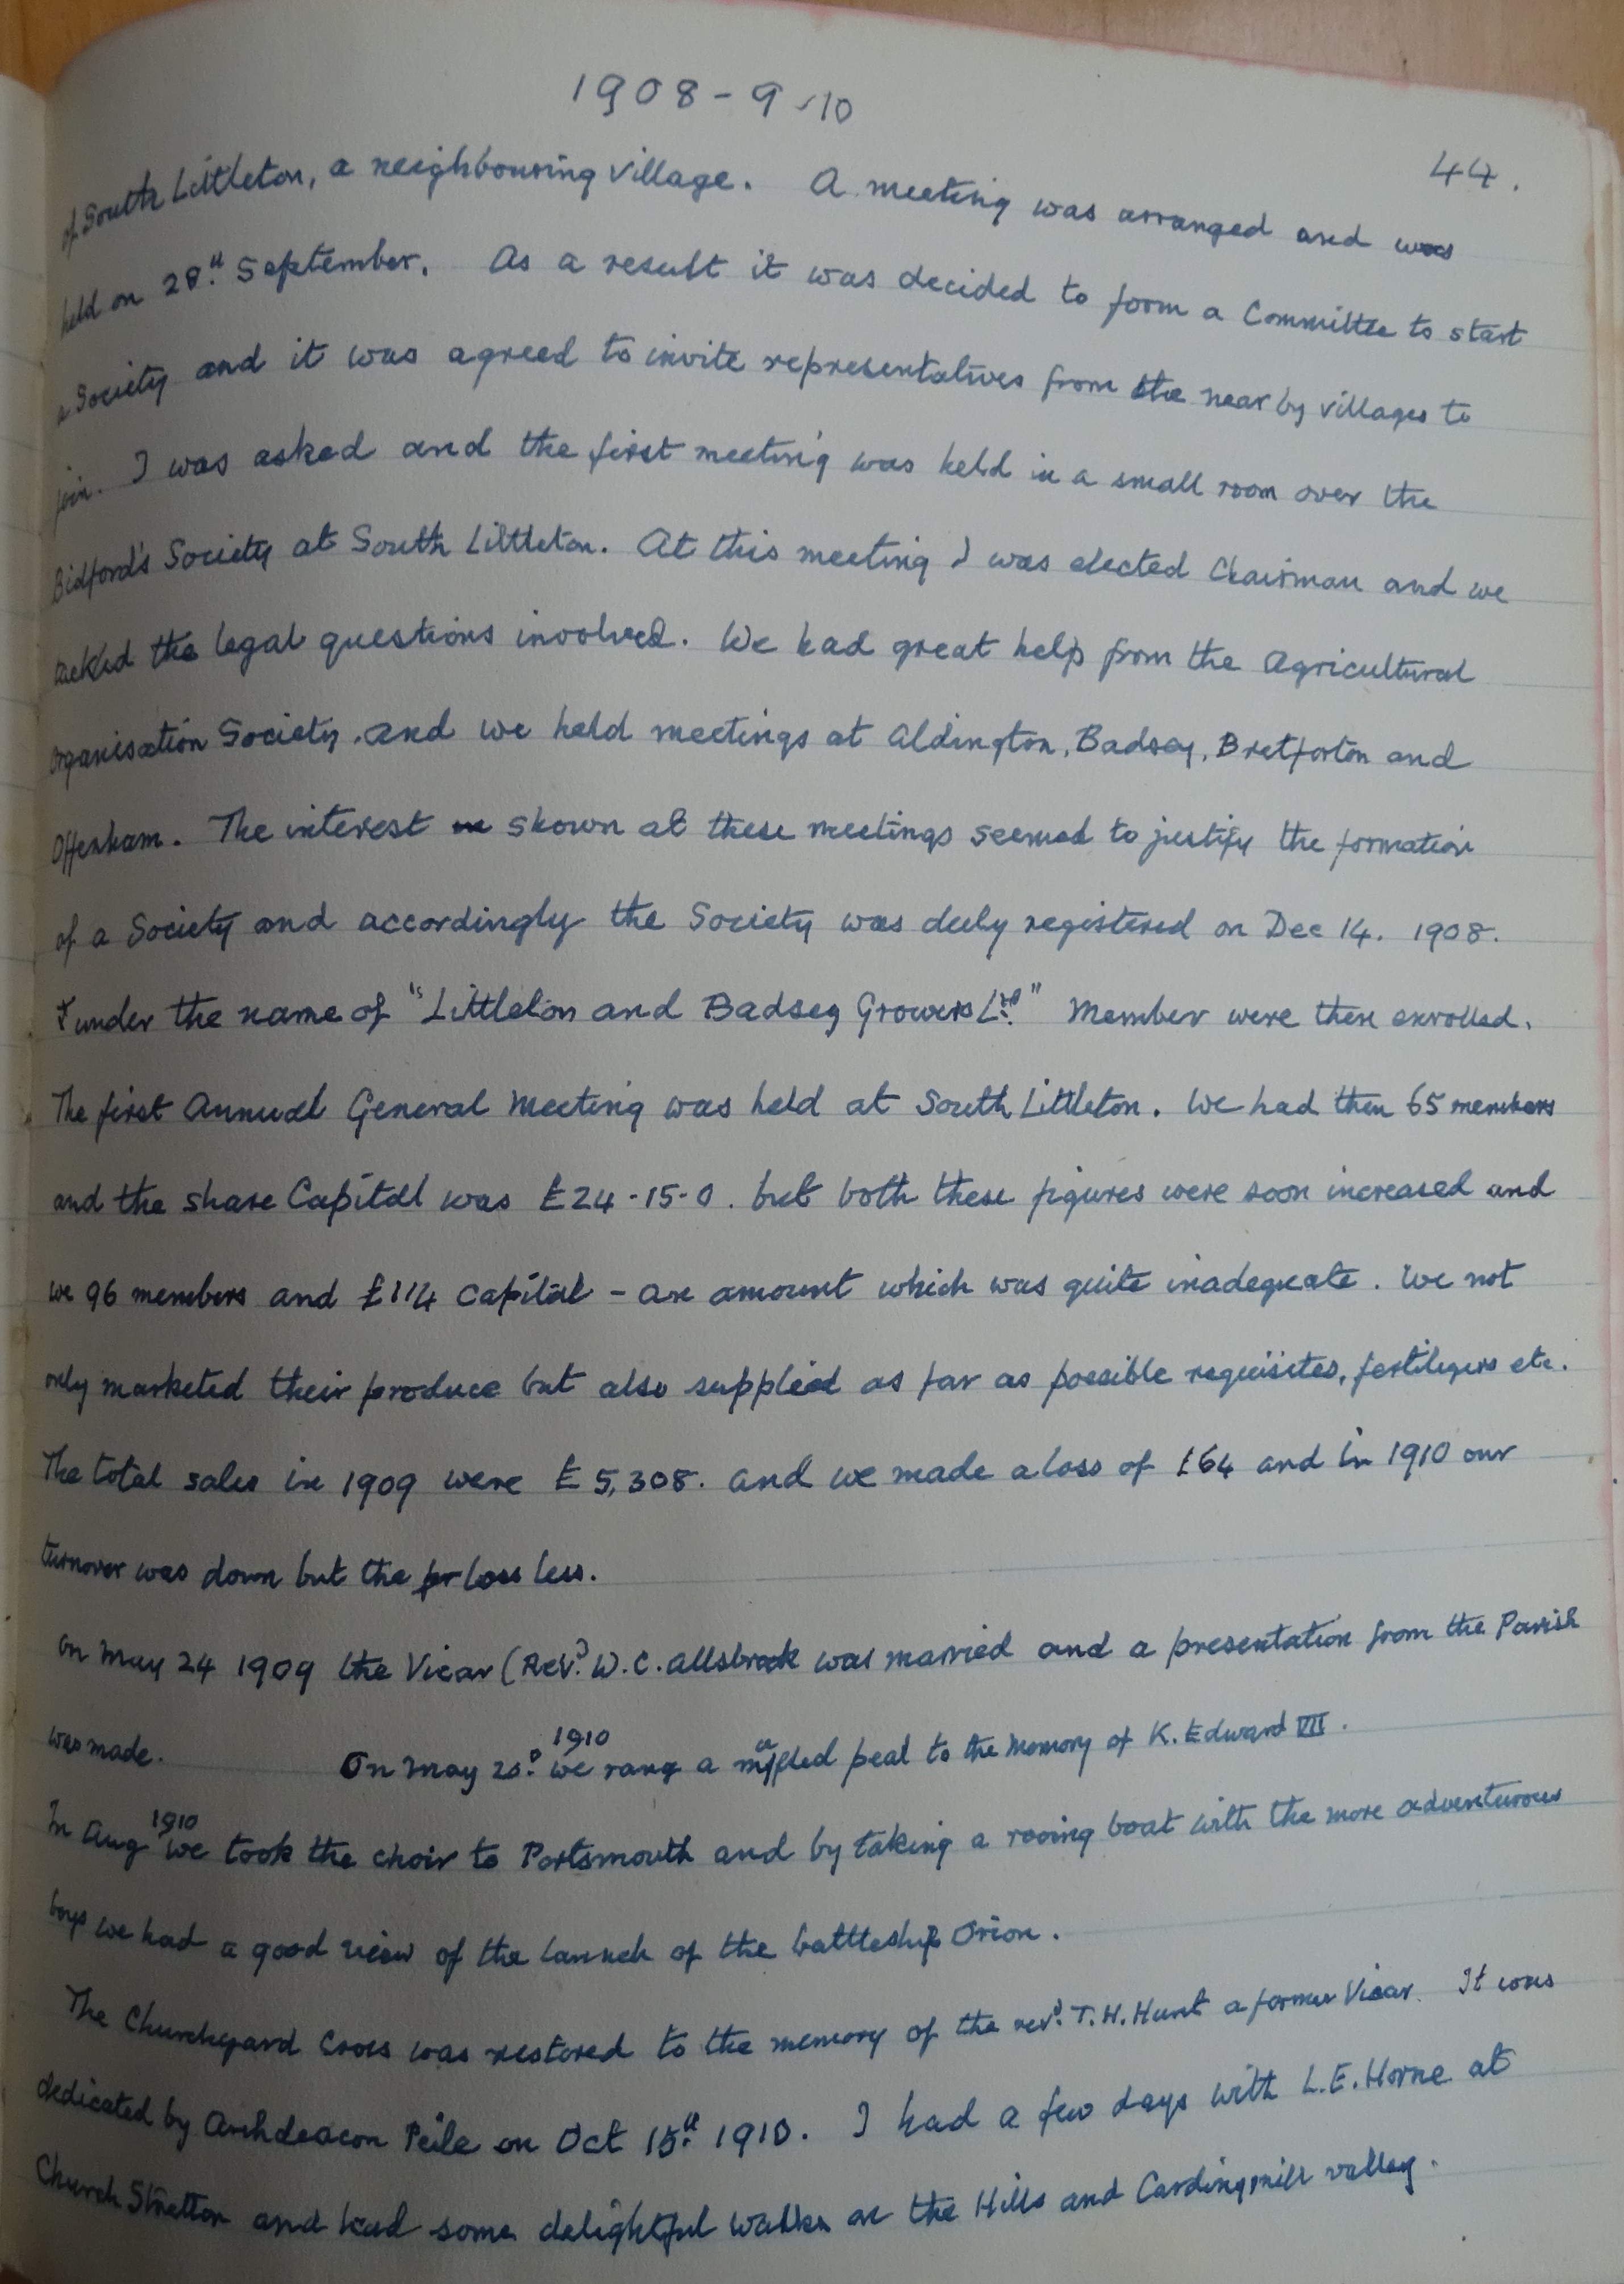 1908-9-10
44.
of South Littleton, a neighbouring village. A meeting was arranged and was
held on 28th September. As a result it was decided to form a Committee to start
a Society and it was agreed to invite representatives from the near by villages to
join. I was asked and the first meeting was held in a small room over the
Bidford's Society at South Littleton. At this meeting I was elected Chairman and we
tackled the legal questions involved. We had great help from the Agricultural
Organisation Society. and we held meetings at Aldington, Badsey, Bretforton and
Offenham. The interest shown at these meetings seemed to justify the formation
of a Society and accordingly the Society was duly registered on Dec 14. 1908.
under the name of "Littleton and Badsey Growers Ltd" Member were then enrolled.
The first Annual General Meeting was held at South Littleton. We had then 65 members
and the share Capital was £24-15-0. but both these figures were soon increased and
we 96 members and £114 Capital - an amount which was quite inadequate. We not
only marketed their produce but also supplied as far as possible requisites, fertilizers etc.
The total sales in 1909 were £5,308. and we made a loss of £64 and in 1910 our
turnover was down but the loss less.
On May 24 1909 the Vicar (Revd. W.C. Allsbrook was married and a presentation from the Parish
was made. On May 20d. 1910 we rang a muffled peal to the Memory of K. Edward VII.
In Aug 1910 we took the choir to Portsmouth and by taking a rowing boat with the more adventurous
boys we had a good view of the launch of the battleship Orion.
The Churchyard Cross was restored to the memory of the revd. T.H. Hunt a former Vicar. It was
dedicated by Archdeacon Peile on Oct 15th 1910. I had a few days with L.E. Horne at
Church Stretton and had some delightful walks on the Hills and Cardingmill valley.